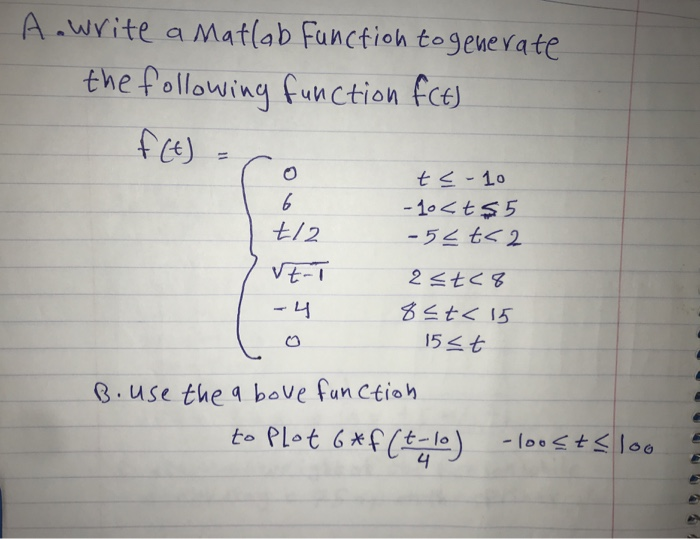 A. Write a Matlab Function to generate
the following function f(t)
f(t) =
0 t ≤ -10
6 -10 < t ≤ 5
t/2 -5 ≤ t < 2
√t-1 2 ≤ t < 8
-4 8 ≤ t < 15
0 15 ≤ t
B. use the a bove function
to Plot 6*f(t-10/4) -100 ≤ t ≤ 100